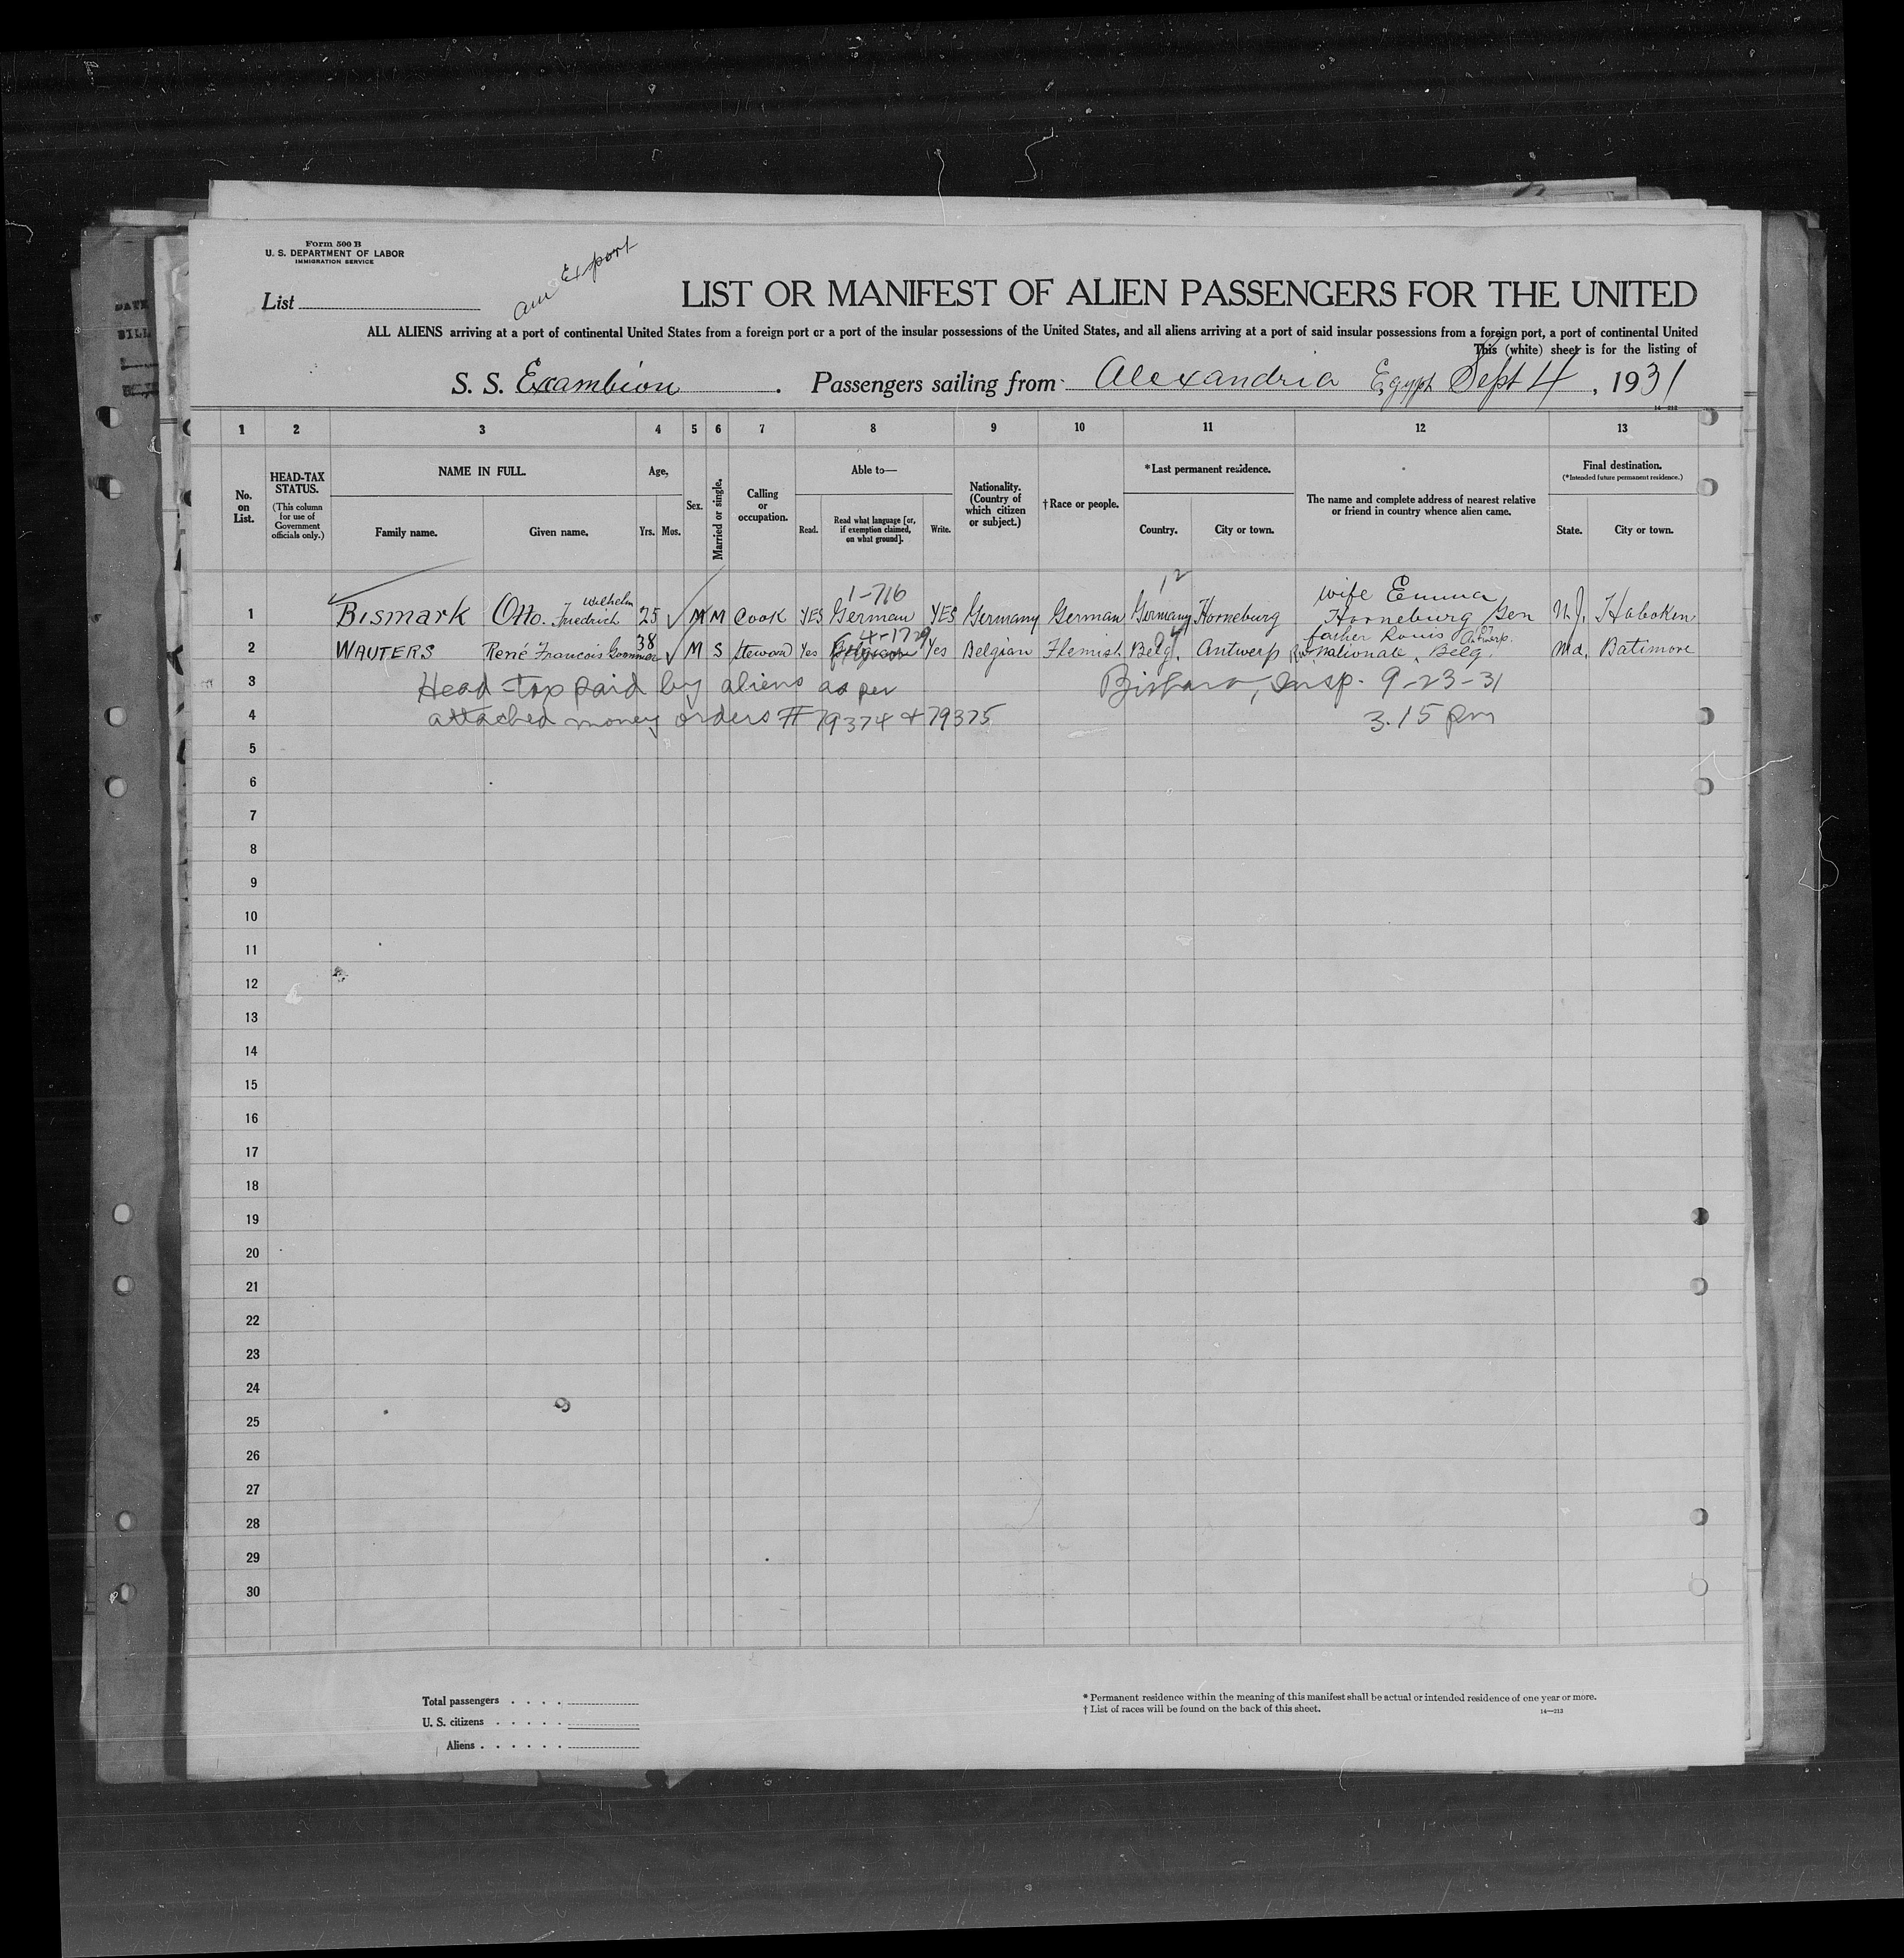 Form 500 B
U. S. DEPARTMENT OF LABOR
IMMIGRATION SERVICE
Am Export
List
LIST OR MANIFEST OF ALIEN PASSENGERS FOR THE UNITED
ALL ALIENS arriving at a port of continental United States from a foreign port or a port of the insular possessions of the United States, and all aliens arriving at a port of said insular possessions from a foreign port, a port of continental United
This (white) sheet is for the listing of
S. S. Excambion . Passengers sailing from Alexandria Egypt Sept 4 , 1931
14—213
1 2 3 4 5 6 7 8 9 10 11 12 13
No. on List.
HEAD-TAX STATUS.
(This column for use of Government officials only.)
NAME IN FULL.
Family name. Given name.
Age,
Yrs. Mos.
Sex.
Married or single.
Calling or occupation.
Able to—
Read. Read what language [or, if exemption claimed, on what ground]. Write.
Nationality. (Country of which citizen or subject.)
† Race or people.
*Last permanent residence.
Country. City or town.
The name and complete address of nearest relative or friend in country whence alien came.
Final destination.
(*Intended future permanent residence.)
State. City or town.
1-716 12
1 Bismark Otto Friedrich Wilhelm 25 M M Cook YES German YES Germany German Germany Horneburg wife Emma Horneburg Gen N.J. Hoboken
4-1729
2 WAUTERS René Francois 38 M S Steward Yes Yes Belgian Flemish Belg. Antwerp father Louis Antwerp. Nationale, Belg. Md. Batimore
3 Head-tax paid by aliens as per Insp. 9-23-31
4 attached money orders # 79374 & 79375 3.15 pm
5
6
7
8
9
10
11
12
13
14
15
16
17
18
19
20
21
22
23
24
25
26
27
28
29
30
Total passengers . . . .
U. S. citizens . . . . .
Aliens . . . . . .
* Permanent residence within the meaning of this manifest shall be actual or intended residence of one year or more.
† List of races will be found on the back of this sheet.
14—213